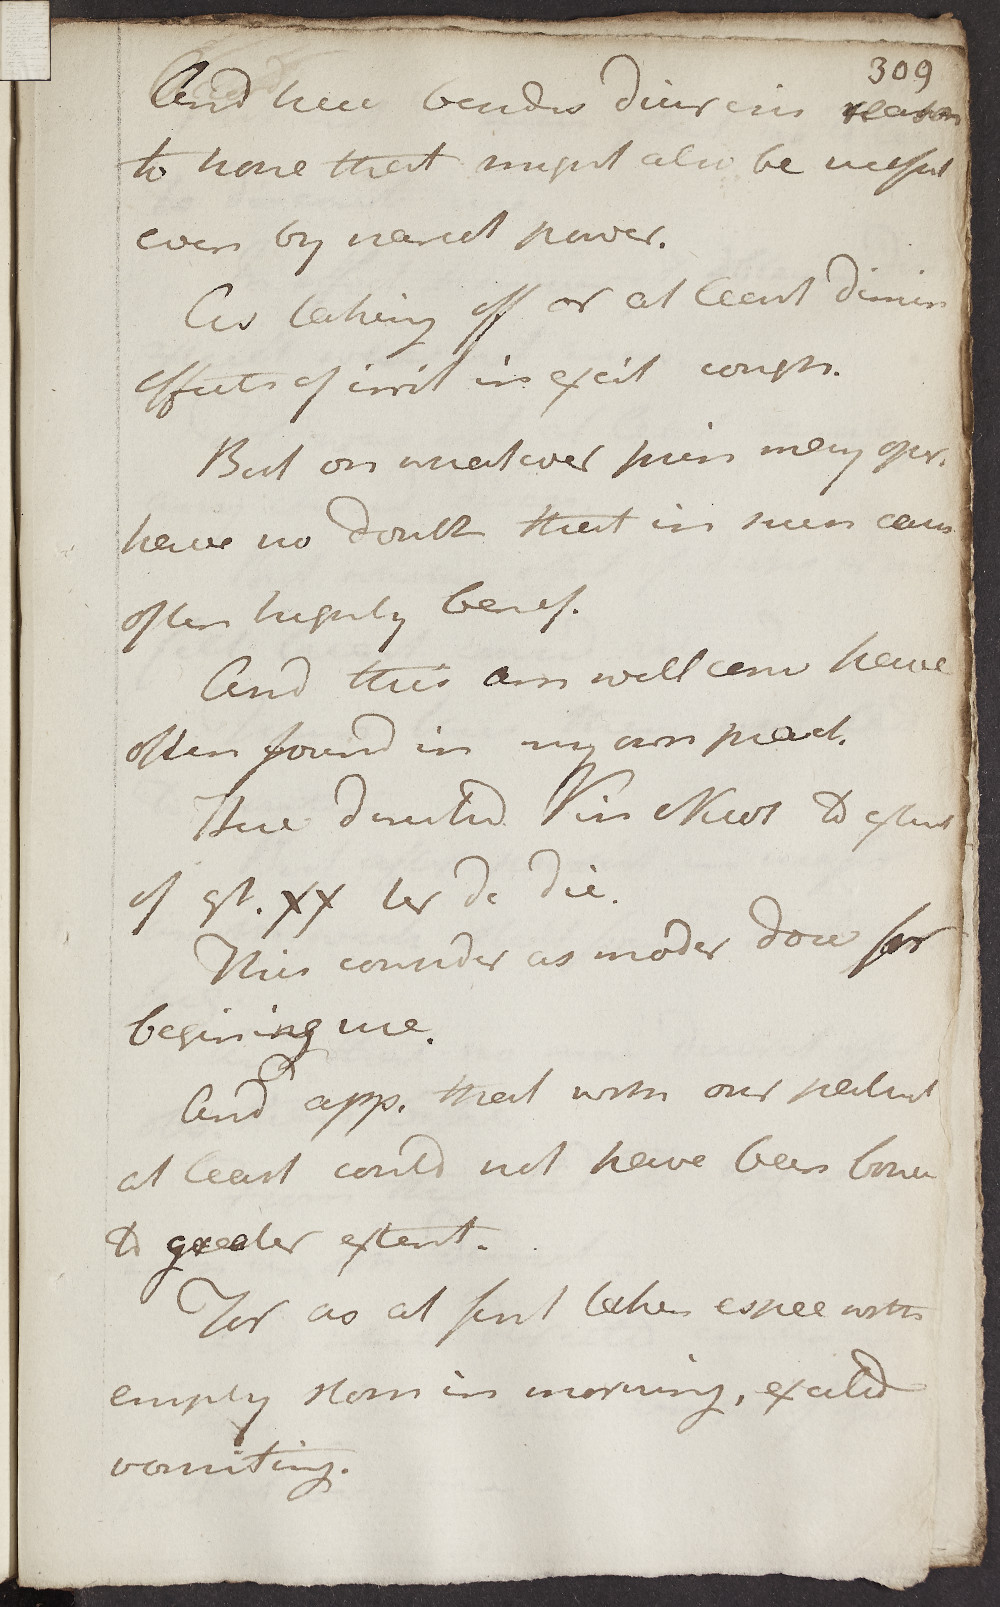 309
And here besides diuresis reason
to hope that might also be useful
even by nauseat power.
As taking off or at least dimin
effects of irrit in excit cough.
But on whatever prin may oper.
have no doubt that in such cases
often highly benef.
And this am well conv have
often found in my own pract.
Here directed Vin Nicot to extent
of gt. xx ter de die.
This consider as moder dose for
begining use.
And app. that with our patient
at least could not have been borne
to greater extent.
For as at first taken espec with
empty stom in morning, excited
vomiting.